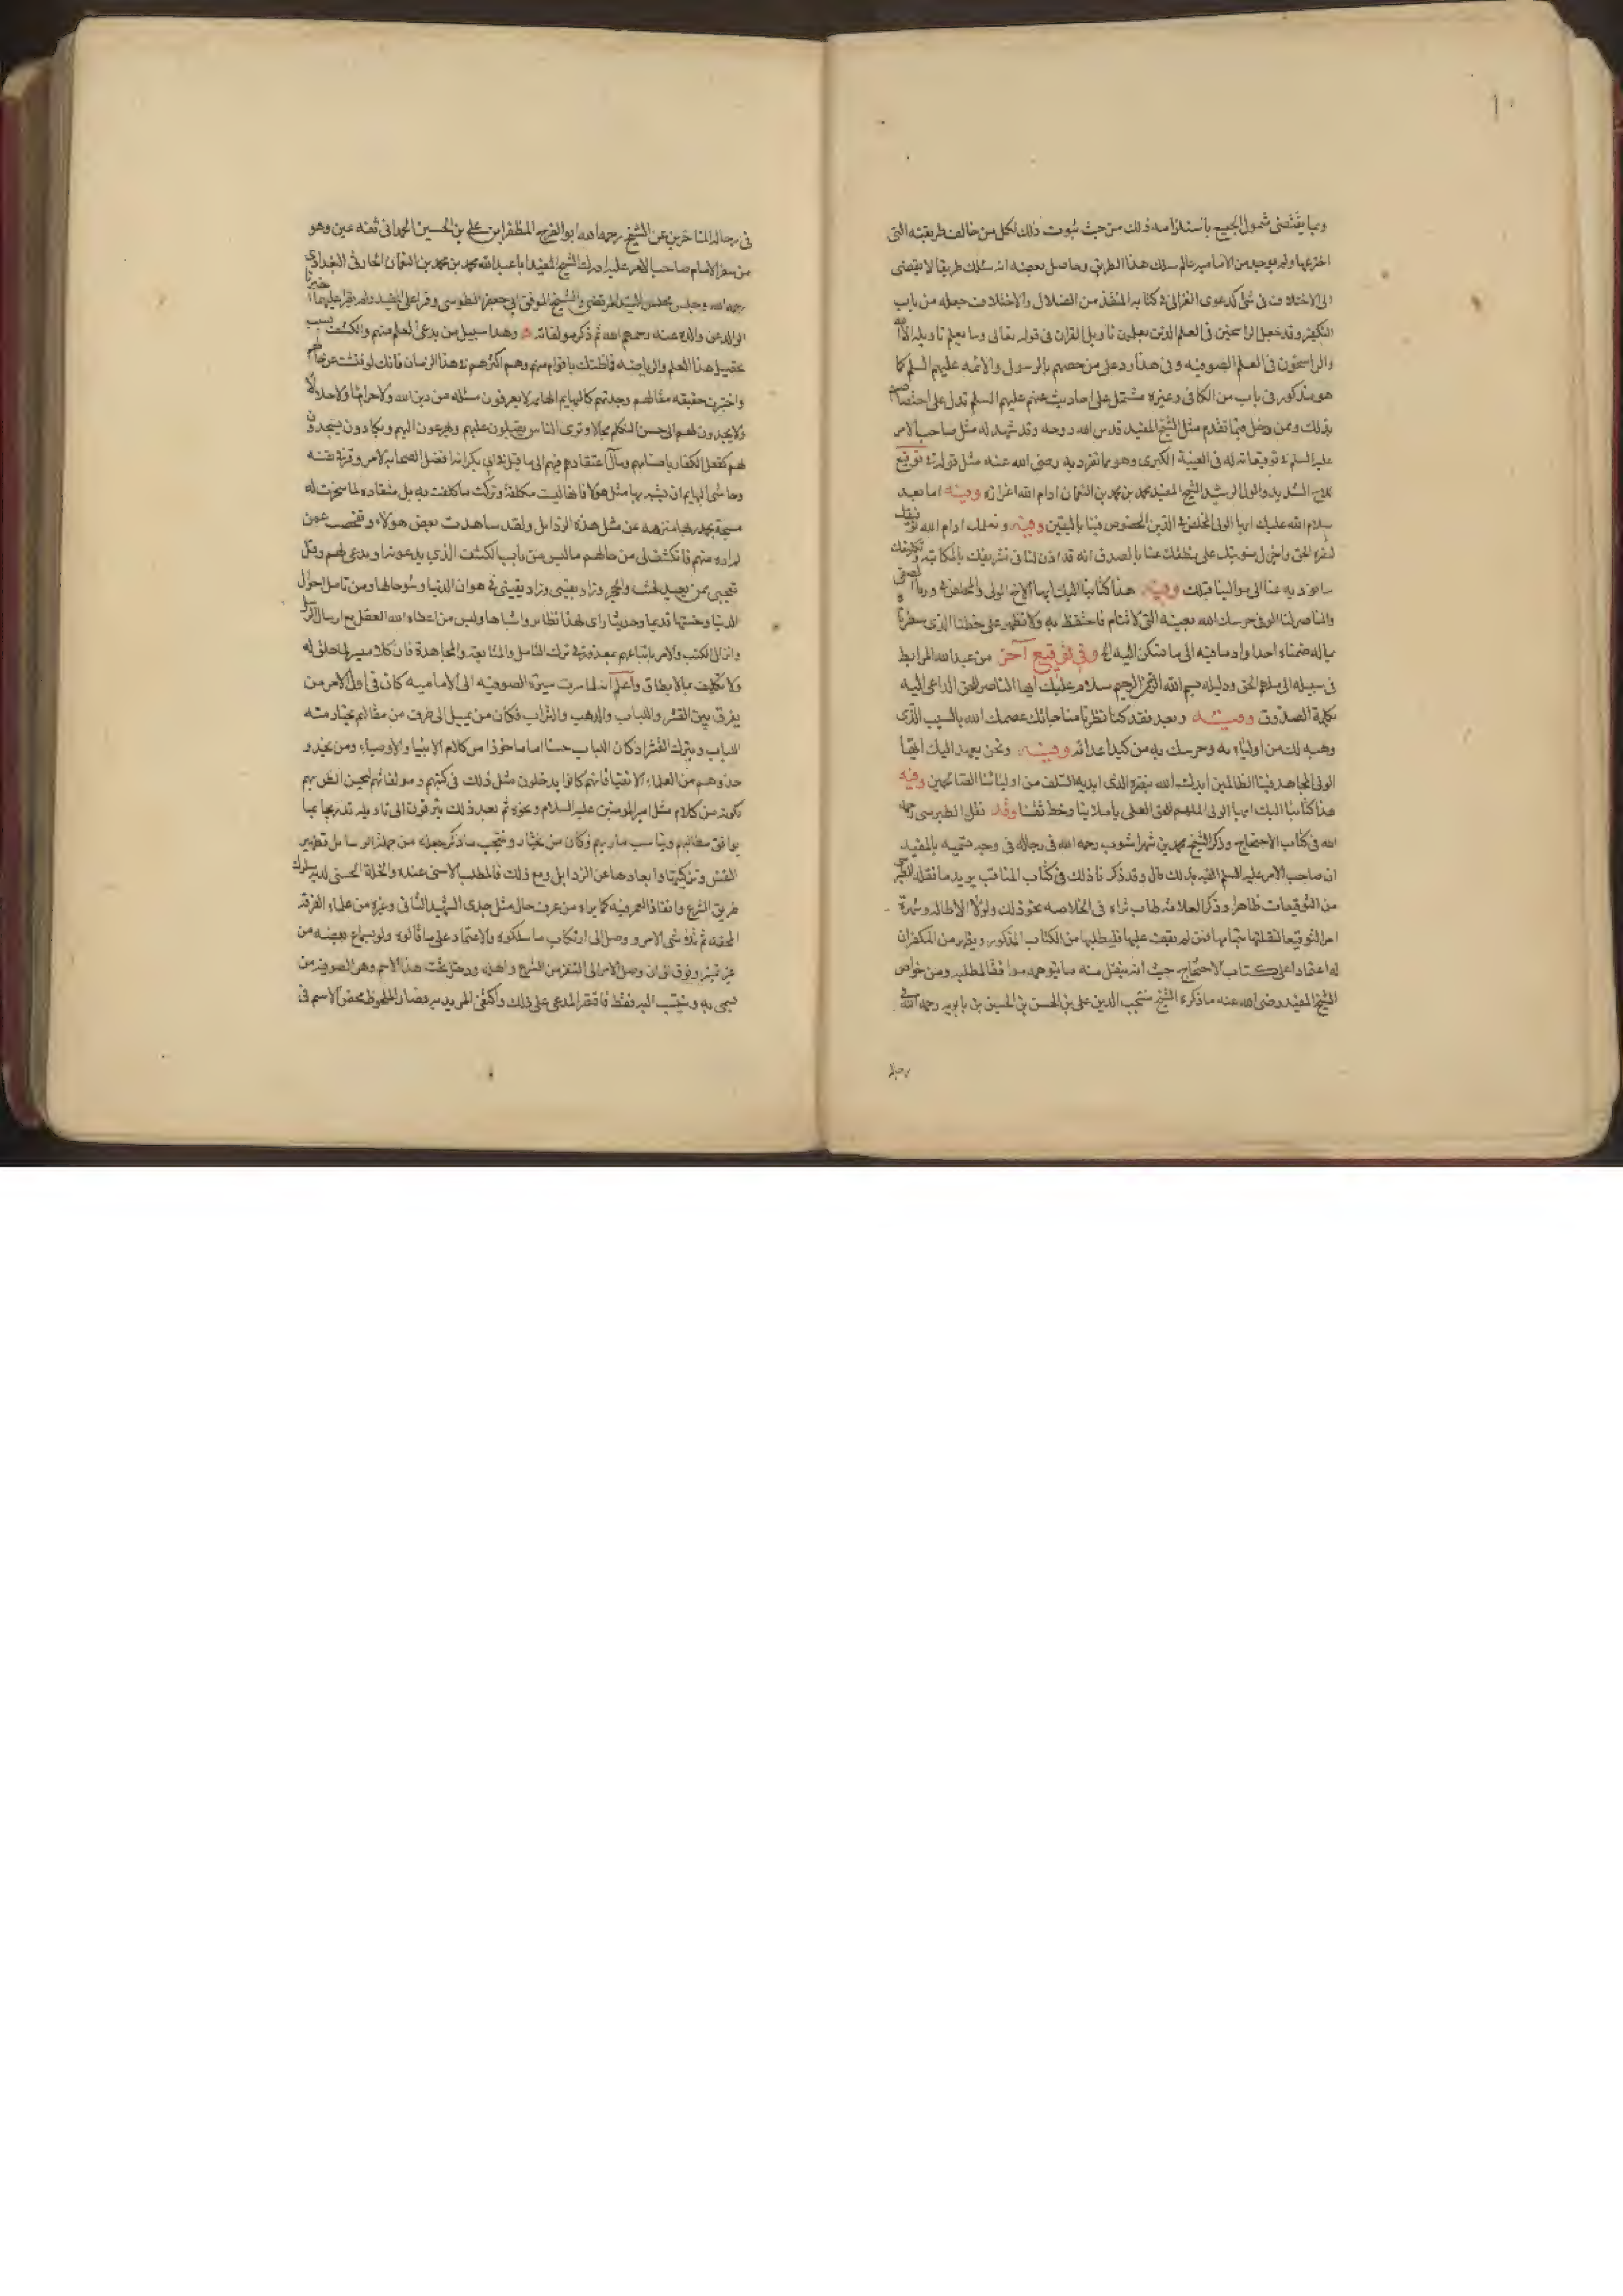 وبما يقتضى شمول الجميع باستلزامه ذلك من حيث ثبوت ذلك لكل من خالف طريقته التى
اخترعها ولم يوجد من الامامية عالم سلك هذا الطريق وحاصل بعضه انه سلك طريقا لا يقتضى
الى الاختلاف فى شئ كدعوى الغزالى فى كتابه المنقذ من الضلال والاختلاف جعله من باب
التكفير وقد جعل الراسخين فى العلم الذين يعلمون تاويل القران فى قوله تعالى وما يعلم تاويله الا الله
والراسخون فى العلم الصوفيه وفى هذا رد على من خصهم بالرسول والائمه عليهم السلم كما
هو مذكور فى باب من الكافى وغيره مشتمل على احاديث عنهم عليهم السلم تدل على اختصاصهم
بذلك وممن دخل فيما تقدم مثل الشيخ المفيد قدس الله روحه وقد شهد له مثل صاحب الامر
عليه السلم فى توقيعاته له فى الغيبة الكبرى وهو مما تفرد به رضى الله عنه مثل قوله فى توقيع
للاخ السديد والولى الرشيد الشيخ المفيد محمد بن محمد بن النعمان ادام الله اعزازه وفيه اما بعد
سلام الله عليك ايها الولى المخلص فى الدين المخصوص فينا باليقين وفيه ونعلمك ادام الله توفيقك
لنصرة الحق واجزل مثوبتك على نطقك عنا بالصدق انه قد اذن لنا فى تشريفك بالمكاتبة وتكليفك
ما تؤديه عنا الى موالينا قبلك وفيه هذا كتابنا اليك ايها الاخ الولى والمخلص فى ودنا الصفى
والناصر لنا الوفى حرسك الله بعينه التى لا تنام فاحتفظ به ولا تظهر على خطنا الذى سطرناه
بماله ضمناه احدا واد ما فيه الى ما تسكن اليه الخ وفى توقيع آخر من عبد الله المرابط
فى سبيله الى ملهم الحق ودليله بسم الله الرحمن الرحيم سلام عليك ايها الناصر للحق الداعى اليه
بكلمة الصدق وفيه وبعد فقد كنا نظرنا مناجاتك عصمك الله بالسبب الذى
وهبه لك من اوليائه وحرسك به من كيد اعدائه وفيه ونحن نعهد اليك ايها
الولى المجاهد فينا الظالمين ايدك الله بنصره الذى ايد به السلف من اوليائنا الصالحين وفيه
هذا كتابنا اليك ايها الولى الملهم للحق العلى باملائنا وخط ثقتنا وقد نقل الطبرسى رحمه
الله فى كتاب الاحتجاج وذكر الشيخ محمد بن شهراشوب رحمه الله فى رجاله فى وجه تسميه بالمفيد
ان صاحب الامر عليه السلم لقبه بذلك قال وقد ذكرنا ذلك فى كتاب المناقب يويد ما نقله الطبرسى
من التوقيعات ظاهرا وذكر العلامه طاب ثراه فى الخلاصه نحو ذلك ولولا الاطاله وشهرة
امر التوقيعات لنقلتها بتمامها فمن لم يقف عليها فليطلبها من الكتاب المذكور
له اعتماد على كتاب الاحتجاج حيث انه ينقل منه ما يتوهمه موافقا لمطلبه ومن خواص
الشيخ المفيد رضى الله عنه ما ذكره الشيخ منتجب الدين على بن الحسن بن الحسين بن بابويه رحمه الله فى
رجاله
فى رجاله المتاخرين عن الشيخ رحمه الله ابو الفرج المظفر ابن على بن الحسين الحمدانى ثقه عين وهو
من سفراء الامام صاحب الامر عليه ادرك الشيخ المفيد ابا عبد الله محمد بن محمد بن النعمان الحارثى البغدادى
رحمه الله وجلس مجلس السيد المرتضى والشيخ الموفق ابى جعفر الطوسى وقرأ على المفيد ولم يقرأ عليهما اخبرنا
الوالد عن والده عنه رحمهم الله ثم ذكر مولفاته وهذا سبيل من يدعى العلم منهم والكشف بسبب
تحصيل هذا العلم والرياضه فاظنك باقوام منهم وهم اكثرهم فى هذا الزمان فانك لو فتشت عن حالهم
واختبرت حقيقه مقالهم وجدتهم كالبهايم الهايمه لا يعرفون مسئله من دين الله ولا حراما ولا حلالا
ولا يجدون لهم الى حسن التكلم مجالا وترى الناس يقبلون عليهم ويهرعون اليهم ويكادون يسجدون
لهم كفعل الكفار باصنامهم ومآل اعتقادهم فيهم الى ما قيل فى ابى بكر انه افضل الصحابه لامر وقر فى نفسه
وحاشى البهايم ان يشبه بها مثل هولاء فانها ليست مكلفة وتركت ما كلفت به بل منقاده لما سخرت له
مسبحة بحمد ربها منزهه عن مثل هذه الرذايل ولقد شاهدت بعض هولاء وتفحصت عمن
لم اره منهم فانكشف لى من حالهم ما ليس من باب الكشف الذى يدعونه او يدعى لهم وقل
تعجبى ممن يعبد الخشب والحجر وزاد يقينى وزاد يقينى فى هوان الدنيا وسوء حالها ومن تامل احوال
الدنيا وخستها قديما وحديثا راى لهذا نظاير واشباها وليس من اعطاه الله العقل مع ارسال الرسل
وانزال الكتب والامر باتباعهم بمعذور فى ترك التامل والمتابعة والمجاهدة فان كلا ميسر لما خلق له
ولا تكليف بما لا يطاق واعلم انه لما سرت سيرة الصوفيه الى الاماميه كان فى اول الامر من
يفرق بين القشر واللباب والذهب والتراب فكان من يميل الى طرف من مقالهم يختار منه
اللباب ويترك القشر اذ كان اللباب حسنا اما ماخوذا من كلام الانبيا والاوصياء ومن يحذو
حذوهم من العلماء الاتقيا فانهم كانوا يدخلون مثل ذلك فى كتبهم ومولفاتهم لتحسين الظن بهم
بكونه من كلام مثل امير المومنين عليه السلام ونحوه ثم بعد ذلك يترقون الى تاويله تدريجا بما
يوافق مطالبهم ويناسب ماربهم وكان من يختار وينتخب ما ذكر جعله من جملة الرسائل تطهير
النفس وتزكيتها وابعادها عن الرذايل ومع ذلك فالمطلب الاسنى عنده والخلة الحسنى لديه سلوك
طريق الشرع وانفاذ العمر فيه كما يراه من عرف حال مثل جدى الشهيد الثانى وغيره من علماء الفرقه
المحقه ثم فشى الامر ووصل الى ارتكاب ما سلكوه والاعتماد على ما قالوه ولو بسماع بعضه من
غير تميز وفرق الى ان وصل الامر الى التنفر من الشرع واهله ودخل تحت هذا الاسم وهو الصوفيه من
تسمى به وينتسب اليه فقط فاقتصر المدعى على ذلك واكتفى المريد به فصار الملحوظ محض الاسم فى